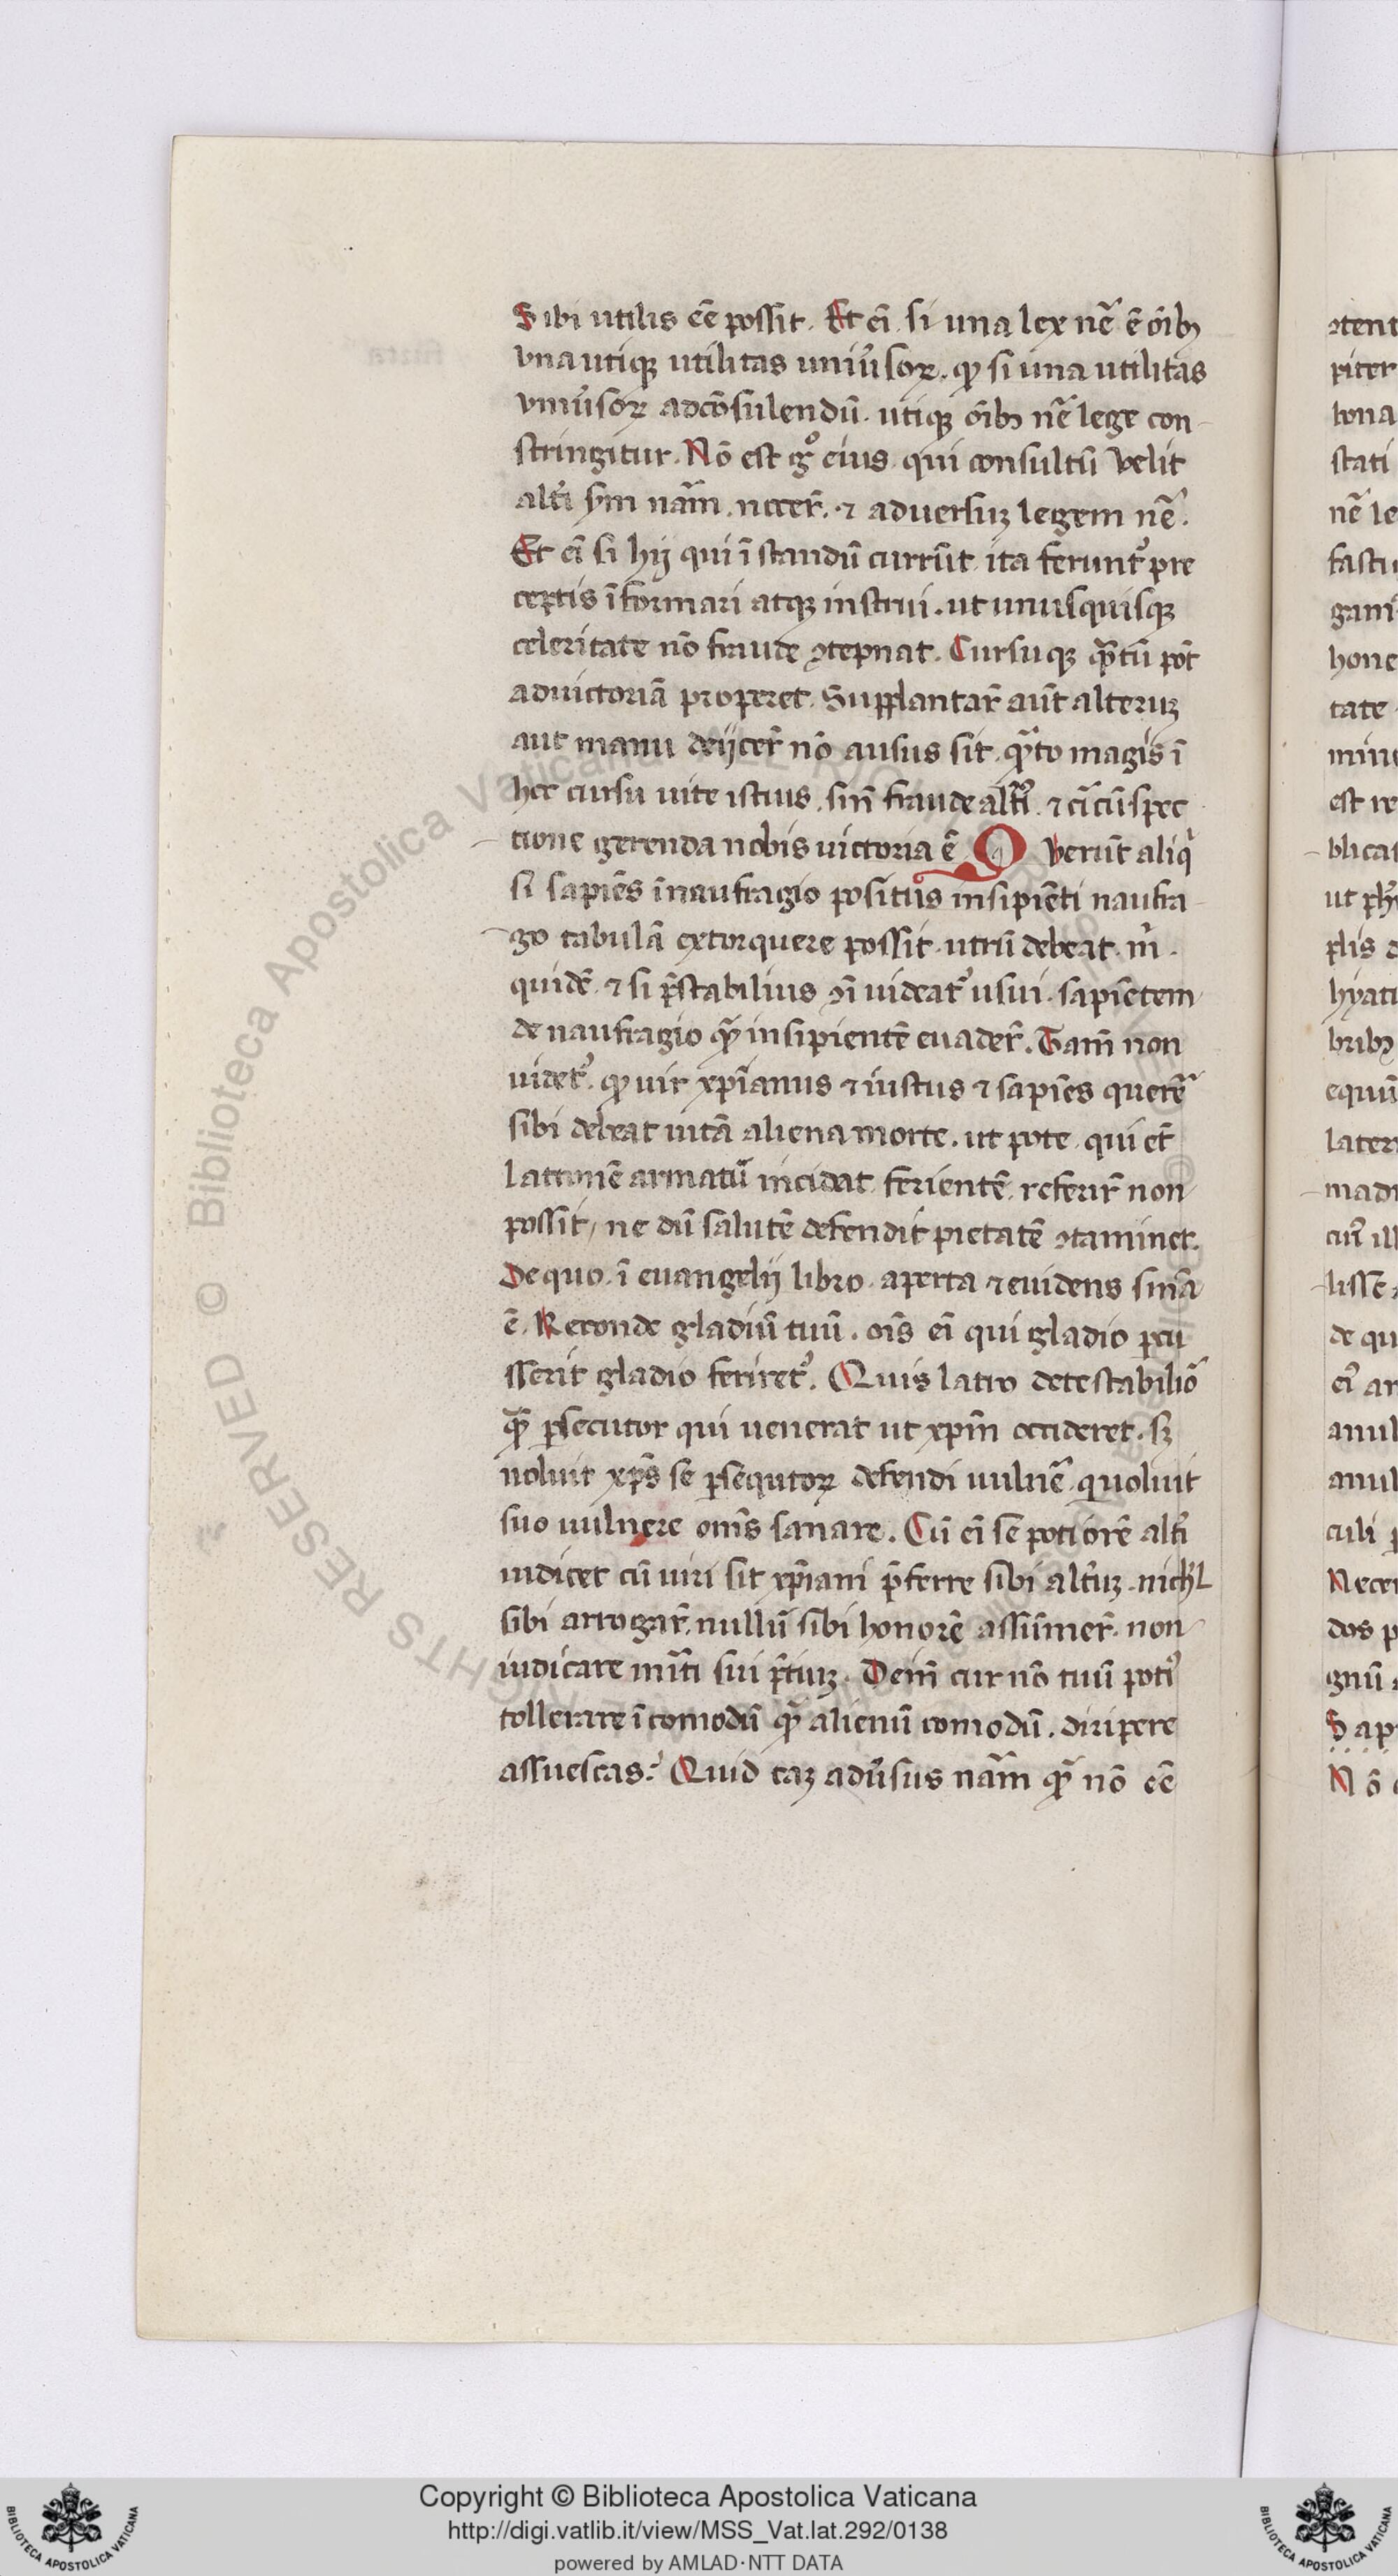 Sibi utilis ēē possit. Et ēi si una lex nēˀ ē oīb
una utiqꝫ utilitas uniu͛soꝝ. ꝙ si una utilitas
uniu͛soꝝ adcōsulendū. utiqꝫ oīb nēˀ lege con
stringitur. Nō est gͦ eius qui consultū velit
alt͛i ꝯm nām. nocer̄. ⁊ aduersuꝫ legem nēˀ.
Et ēi si hij qui ī standū currūt ita feruntᷣ pre
ceptis īformari atqꝫ instrui. ut unusquisqꝫ
celeritate nō fraude ꝯtepnat. Cursuqꝫ qᷓtū pōt
aduictoriā properet. Supplantar̄ aūt alteruꝫ
aut manu deijcer̄ nō ausus sit. qᷓto magis ī
hoc cursu uite istius. sīn fraude alt͛iᷣ. ⁊ cīcūspec
tione gerenda nobis uictoria ē. Querūt aliqͥ
si sapiēs īnaufragio positus insipiēti naufra
go tabulā extorquere possit. utrū debeat. m̄.
quidē. ⁊ si p̄stabilius ꝯī uideatᷣ usui. sapiētem
de naufragio qᷓꝫ insipientē euader̄. Tam̄ non
uidetᷣ. ꝙ uir xp̄ianus ⁊ iustus ⁊ sapiēs querēˀ
sibi debeat uitā aliena morte. ut pote qui et̄
latronē armatū incidat ferientē referir̄ non
possit, ne dū salutē defendit pietatē ꝯtaminet.
De quo. ī euangelij libro aperta ⁊ euidens sīnā
ē. Reconde gladiū tuū. oīs ēi qui gladio ꝑcu
sserit gladio ferietᷣ. Quis latro detestabiliōˀ
qᷓꝫ ꝑsecutor qui uenerat ut xp̄m occideret. sꝫ
noluit xp̄s se ꝑsequtoꝝ defendi uulnēˀ. quoluit
suo uulnere om̄s sanare. Cū ēi se potiorē alt͛i
iudicet cū uiri sit xp̄iani p̄ferre sibi alt͛uꝫ. nichil
sibi arrogar̄. nullū sibi honorē assūmer̄. non
iudicare m͛iti sui p̄tiuꝫ. Dein̄ cur nō tuū potiᷣ
tollerare īcomodū qᷓꝫ alienū comodū. diripere
assuescas? Quid taꝫ adu͛sus nām qᷓꝫ nō ēē
Copyright © Biblioteca Apostolica Vaticana
http://digi.vatlib.it/view/MSS_Vat.lat.292/0138
powered by AMLAD·NTT DATA